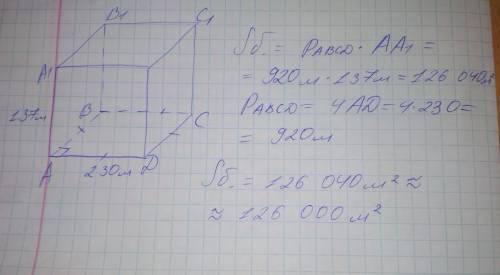 B1
C1
A1
137м
B
C
A
230м
D
Sб. = PABCD · AA1 =
= 920м · 137м = 126 040м
PABCD = 4AD = 4·230 =
= 920м
Sб. = 126 040м² ≈
≈ 126 000м²